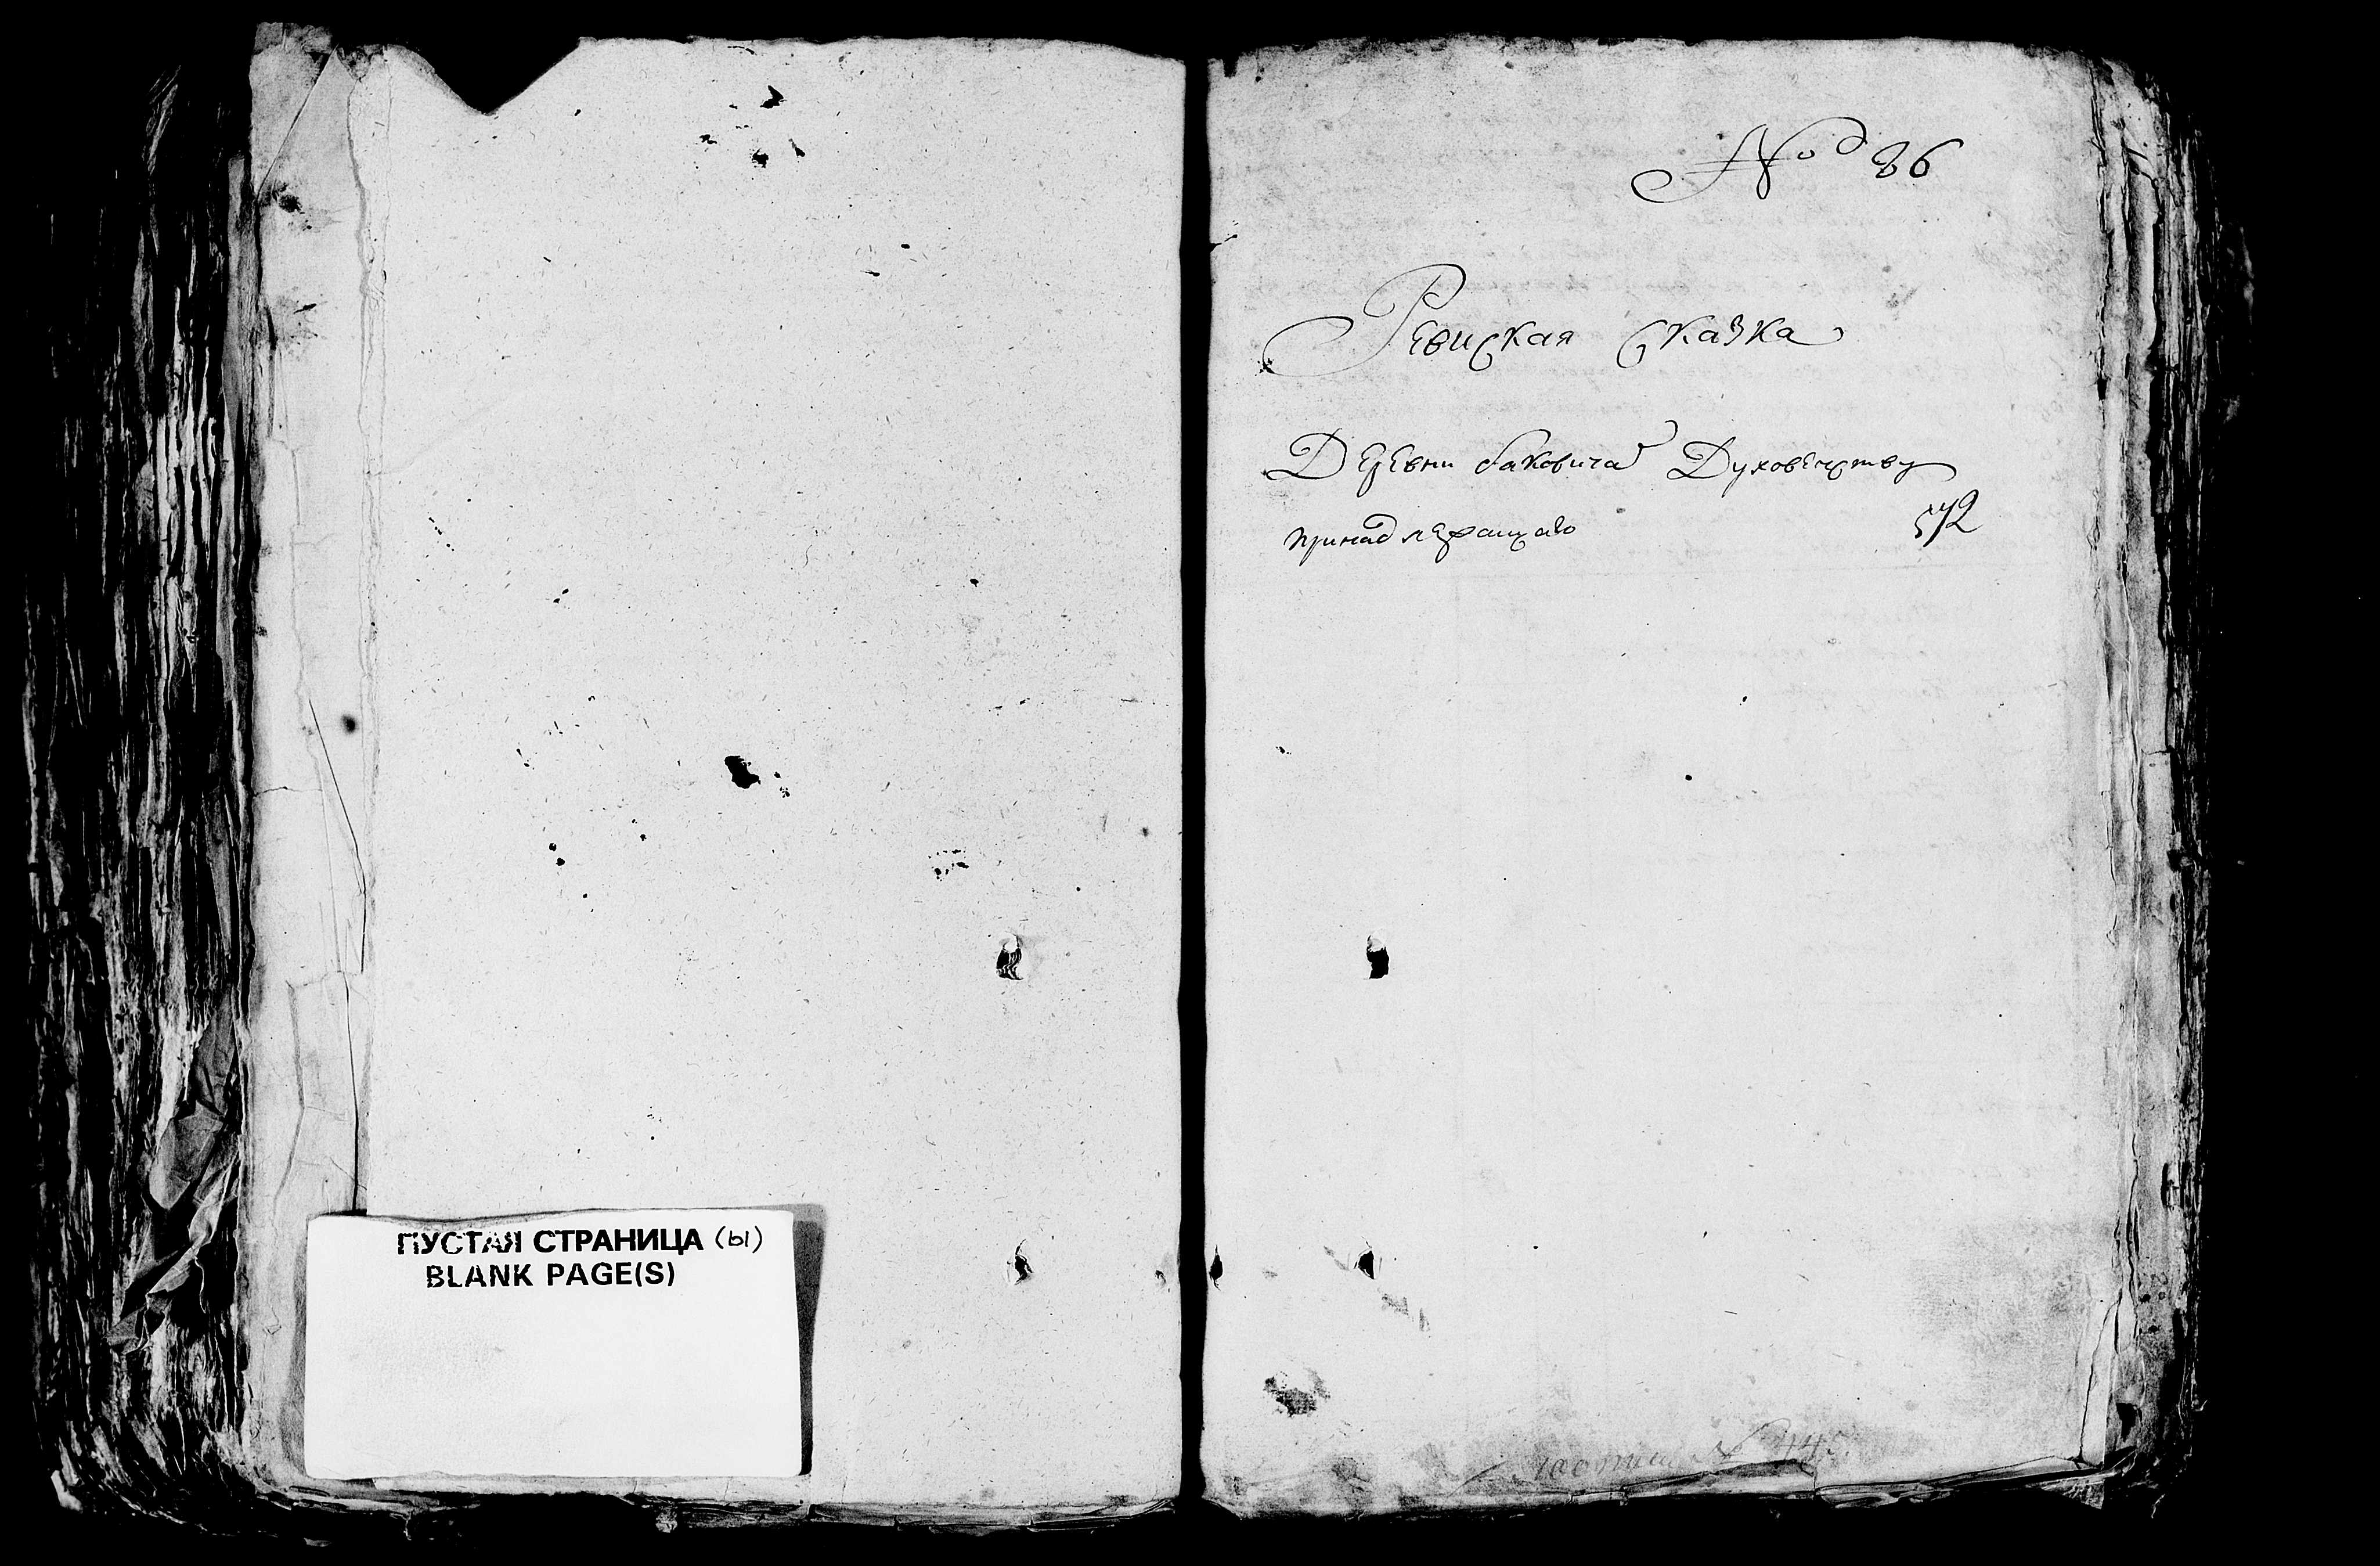 ПУСТАЯ СТРАНИЦА (ы)
BLANK PAGE(S)
No 86
Ревиская Сказка
Деревни баковича Духовенству
принадлежащаго
572